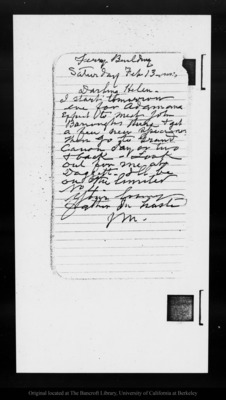 Ferry Building
Saturday Feb 13
Darling Helen.
I start tomorrow
eve for Adamana
Expect to meet John
Burroughs there & get
a few new specimens
then go to Grand
Canon day or two
& back. Look
out for me at
Daggett. I'll be
on the limited
No 4.
Your loving
father in haste
J.M.
Original located at The Bancroft Library, University of California at Berkeley